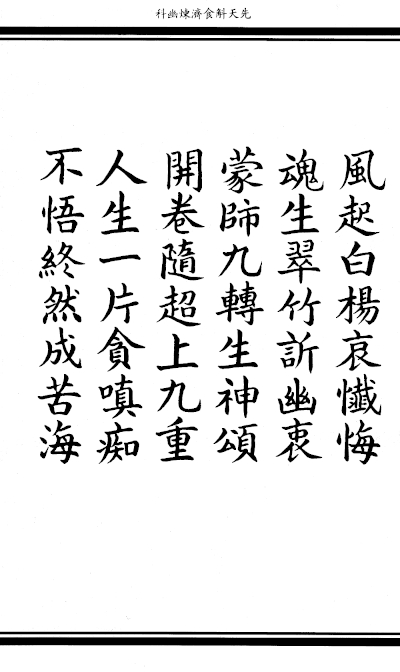 先天斛食濟煉幽科
風起白楊哀懺悔
魂生翠竹訢幽衷
蒙師九轉生神頌
開卷隨超上九重
人生一片貪嗔痴
不悟終然成苦海